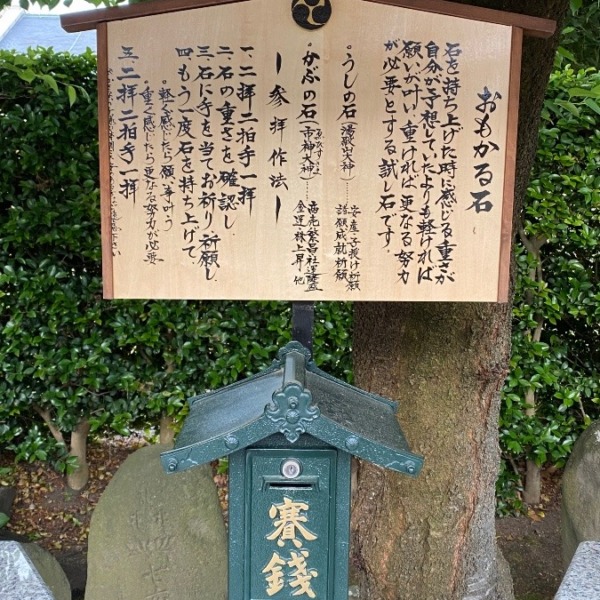 おもかる石
石を持ち上げた時に感じる重さが
自分が予想していたよりも軽ければ
願いが叶い、重ければ更なる努力
が必要とする試し石です。
うしの石(湯殿山大神)……安産・子授け祈願
諸願成就祈願
かぶの石(市神大神)……商売繁昌社運隆盛
金運・株上昇 他
ー参拝作法ー
一、二拝二拍手一拝
二、石の重さを確認し
三、石に手を当てお祈り・祈願し、
四、もう一度石を持ち上げて、
軽く感じたら願い事叶う
重く感じたら更なる努力が必要
五、二拝二拍手一拝
賽銭